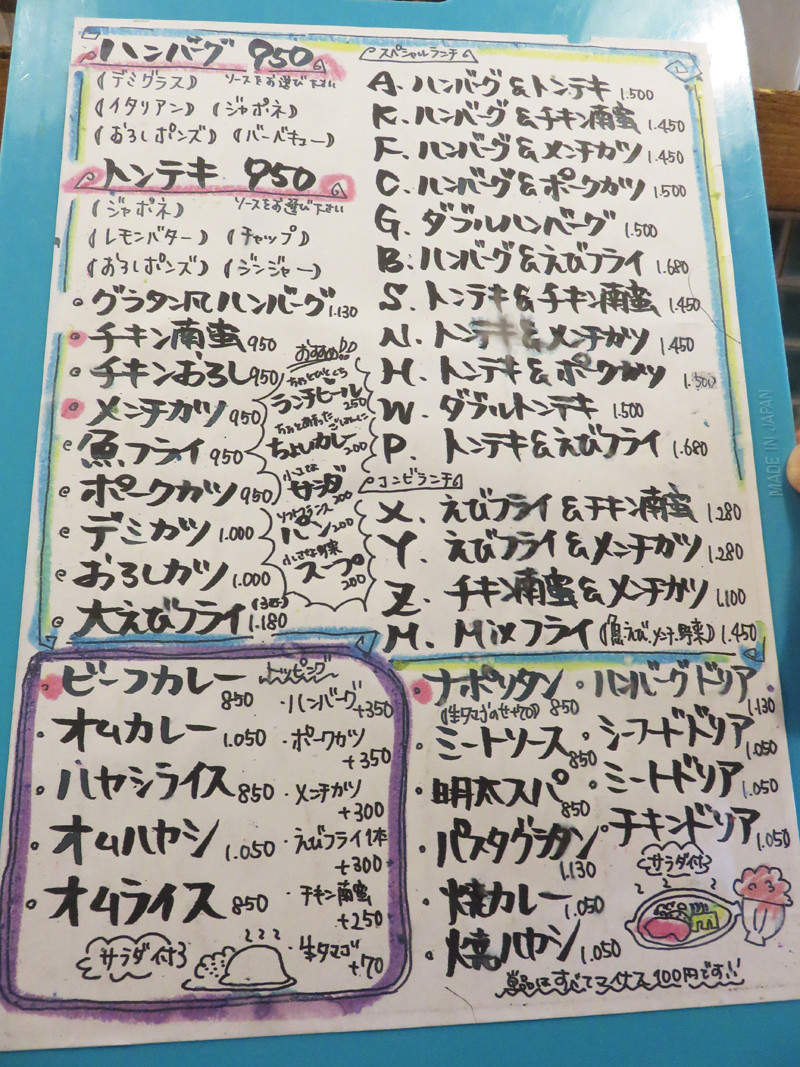 ハンバーグ 950
(デミグラス) ソースをお選び下さい
(イタリアン) (ジャポネ)
(おろしポンズ) (バーベキュー)
トンテキ 950
(ジャポネ) ソースをお選び下さい
(レモンバター) (チャップ)
(おろしポンズ) (ジンジャー)
グラタン風ハンバーグ 1.130
チキン南蛮 950
チキンおろし 950
メンチカツ 950
魚フライ 950
ポークカツ 950
デミカツ 1.000
おろしカツ 1.000
大えびフライ(3匹) 1.180
おすすめ!!
ランチビール 250
ちょいカレー 200
小さな
サラダ 200
ソフトフランス
パン 200
小さな野菜
スープ 200
スペシャルランチ
A. ハンバーグ&トンテキ 1.500
K. ハンバーグ&チキン南蛮 1.450
F. ハンバーグ&メンチカツ 1.450
C. ハンバーグ&ポークカツ 1.500
G. ダブルハンバーグ 1.500
B. ハンバーグ&えびフライ 1.680
S. トンテキ&チキン南蛮 1.450
N. トンテキ&メンチカツ 1.450
H. トンテキ&ポークカツ 1.500
W. ダブルトンテキ 1.500
P. トンテキ&えびフライ 1.680
コンビランチ
X. えびフライ&チキン南蛮 1.280
Y. えびフライ&メンチカツ 1.280
Z. チキン南蛮&メンチカツ 1.100
M. Mixフライ(魚.えび.メンチ.野菜) 1.450
ビーフカレー 850
オムカレー 1.050
ハヤシライス 850
オムハヤシ 1.050
オムライス 850
サラダ付
トッピング
・ハンバーグ +350
・ポークカツ +350
・メンチカツ +300
・えびフライ1本 +300
・チキン南蛮 +250
・生タマゴ +70
・ナポリタン 850
(生タマゴのせ+70)
・ミートソース 850
・明太スパ 850
・パスタグラタン 1.130
・焼カレー 1.050
・焼ハヤシ 1.050
・ハンバーグドリア 1.130
・シーフードドリア 1.050
・ミートドリア 1.050
・チキンドリア 1.050
サラダ付
単品はすべてマイナス100円です!!
MADE IN JAPAN